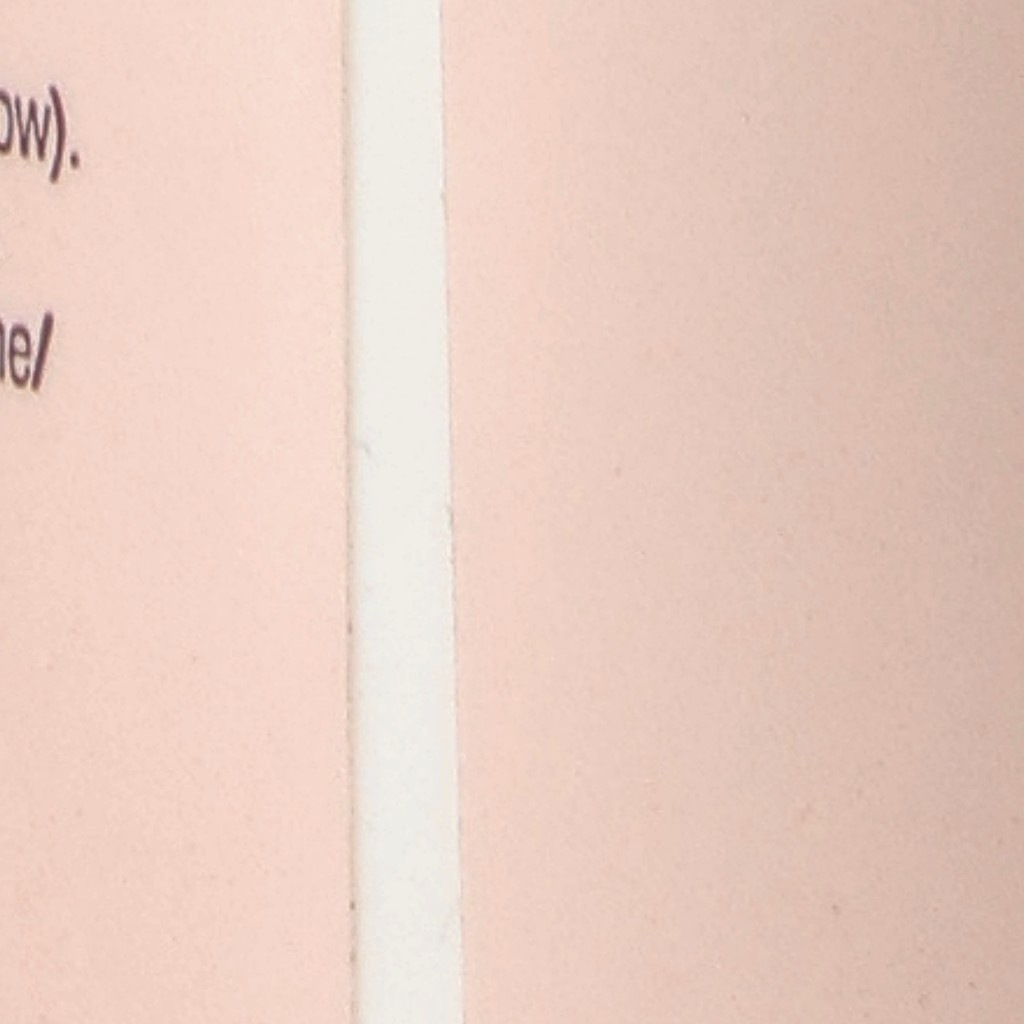 ow).
ne/